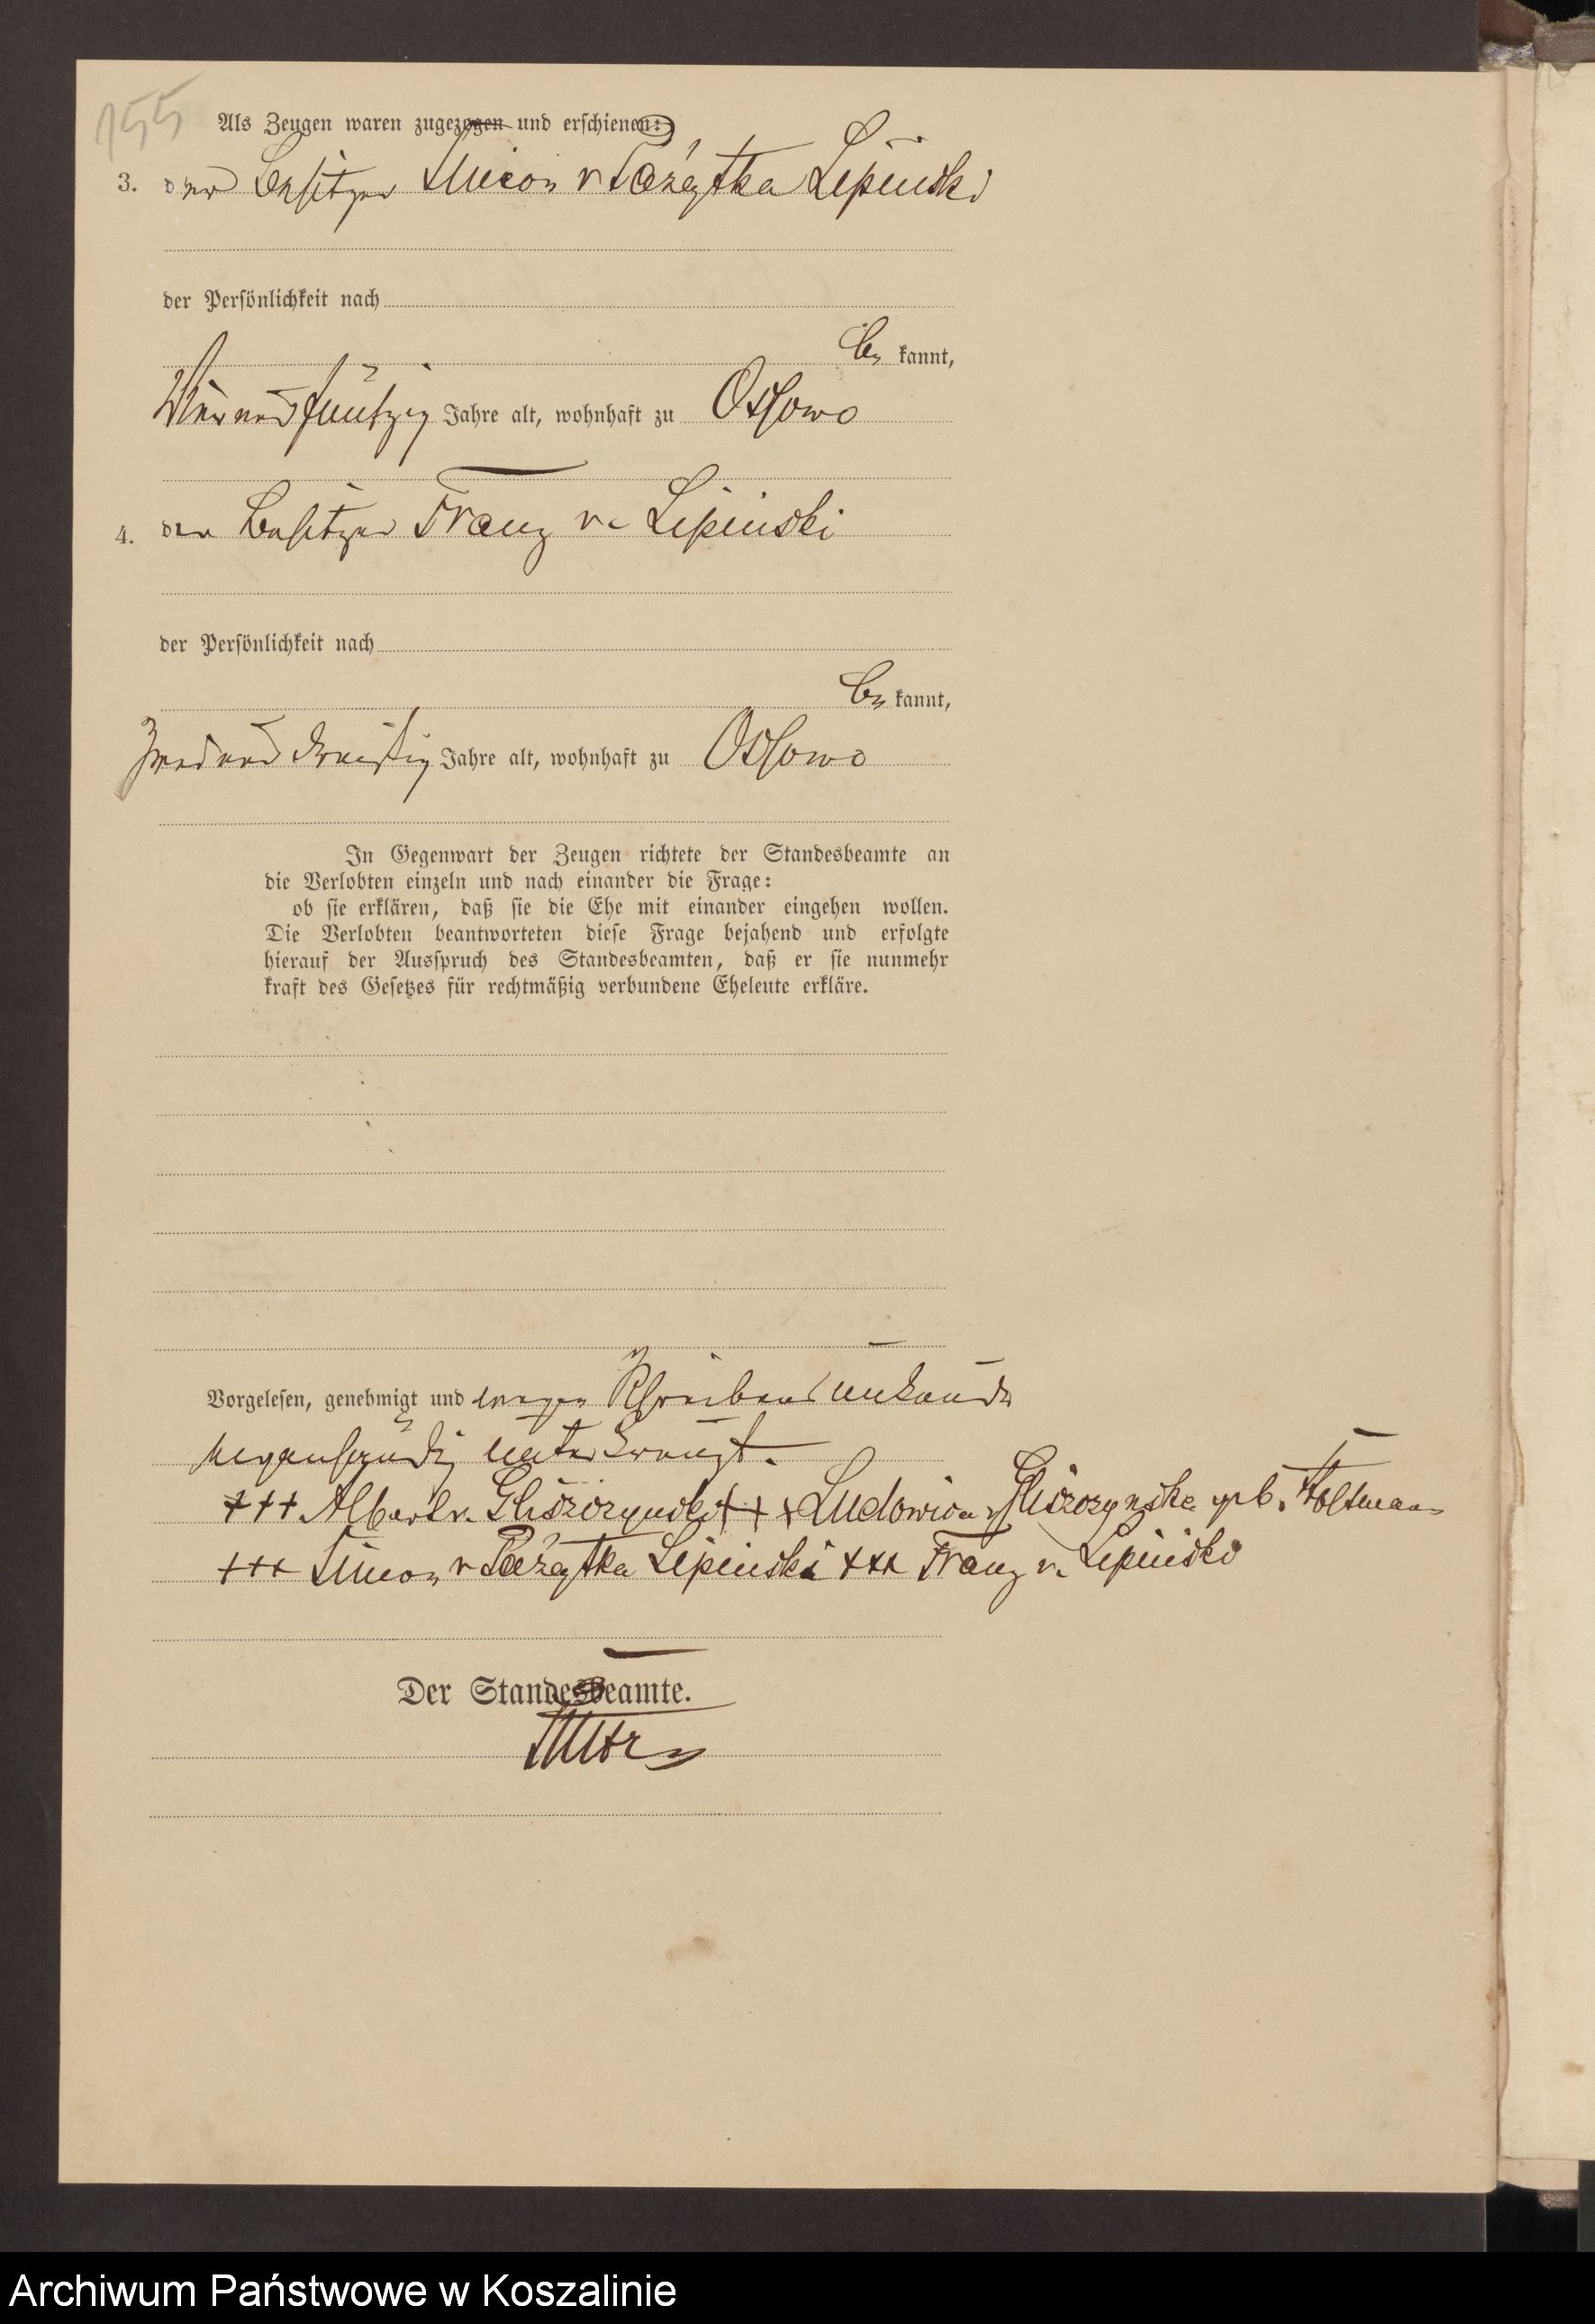 155
Als Zeugen waren zugezogen und erschienen:
3. der Besitzer Simon v Pażątka Lipinski
der Persönlichkeit nach
be kannt,
vier und fünfzig Jahre alt, wohnhaft zu Ossowo
4. der Besitzer Franz v. Lipinski
der Persönlichkeit nach
be kannt,
zwei und dreißig Jahre alt, wohnhaft zu Ossowo
In Gegenwart der Zeugen richtete der Standesbeamte an
die Verlobten einzeln und nach einander die Frage:
ob sie erklären, daß sie die Ehe mit einander eingehen wollen.
Die Verlobten beantworteten diese Frage bejahend und erfolgte
hierauf der Ausspruch des Standesbeamten, daß er sie nunmehr
kraft des Gesetzes für rechtmäßig verbundene Eheleute erkläre.
Vorgelesen, genehmigt und wegen Schreibens unkunde
eigenhändig unterkreuzt.
+++ Albert v. Gliszczynski +++ Ludowica v Gliszczynska geb. Stoltmann
+++ Simon v Pażątka Lipinski +++ Franz v. Lipinski
Der Standesbeamte.